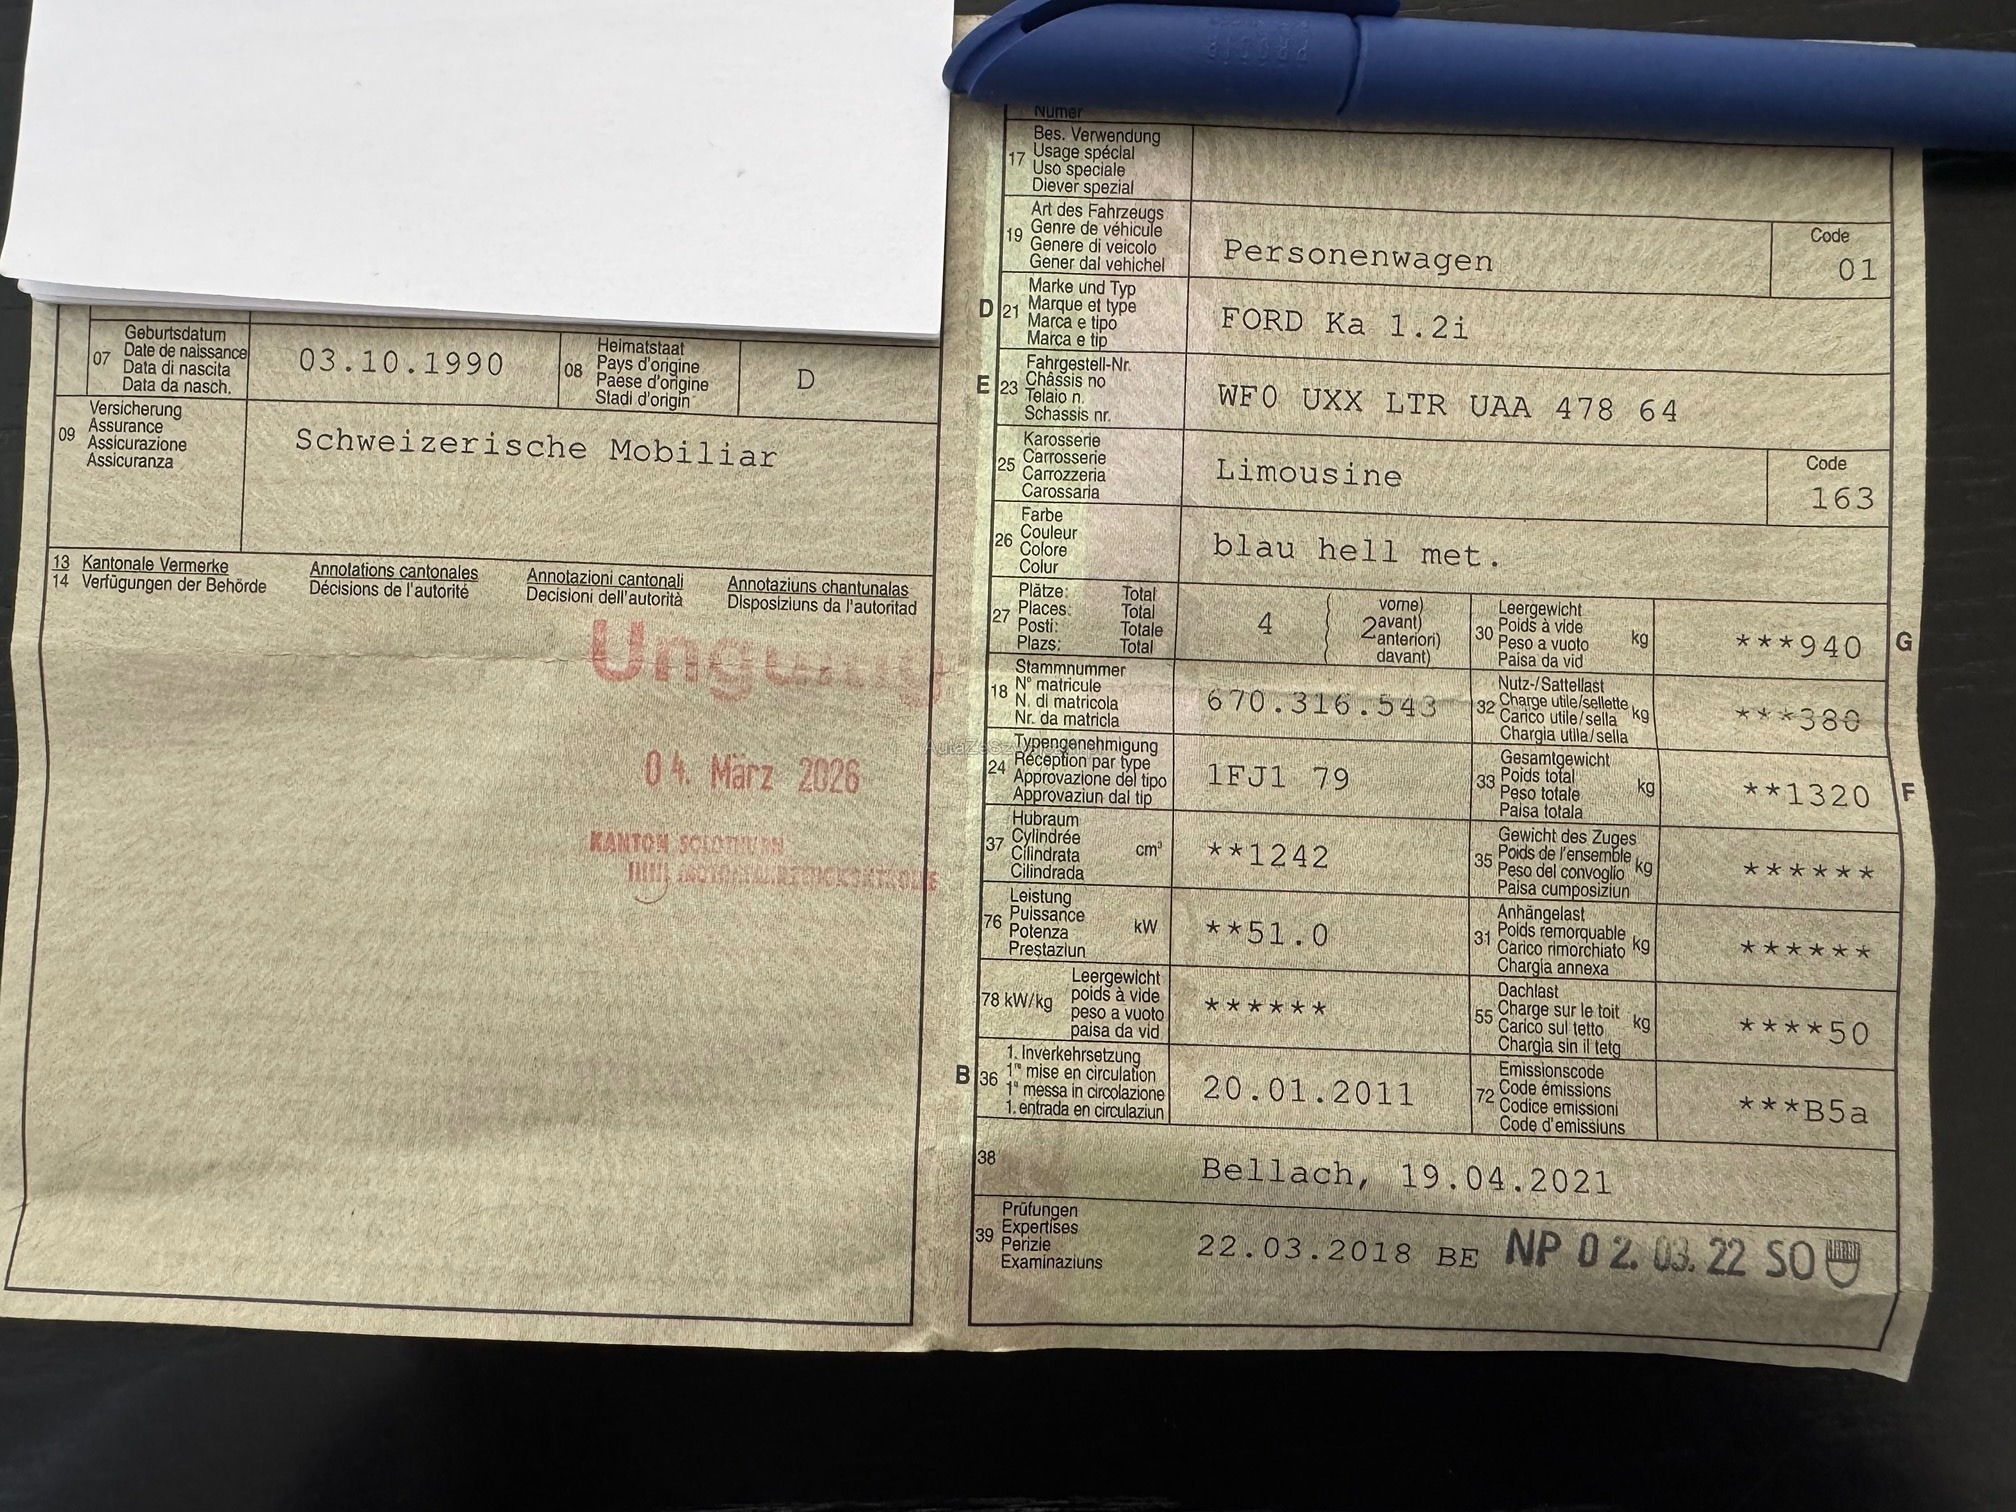 Geburtsdatum
07 Date de naissance
Data di nascita
Data da nasch.
03.10.1990
Heimatstaat
08 Pays d'origine
Paese d'origine
Stadi d'origin
D
Versicherung
09 Assurance
Assicurazione
Assicuranza
Schweizerische Mobiliar
13 Kantonale Vermerke Annotations cantonales Annotazioni cantonali Annotaziuns chantunalas
14 Verfügungen der Behörde Décisions de l'autorité Decisioni dell'autorità Disposiziuns da l'autoritad
Ungültig
04. März 2026
KANTON SOLOTHURN
Numer
Bes. Verwendung
17 Usage spécial
Uso speciale
Diever spezial
Art des Fahrzeugs
19 Genre de véhicule
Genere di veicolo
Gener dal vehichel
Personenwagen
Code
01
Marke und Typ
D 21 Marque et type
Marca e tipo
Marca e tip
FORD Ka 1.2i
Fahrgestell-Nr.
E 23 Châssis no
Telaio n.
Schassis nr.
WF0 UXX LTR UAA 478 64
Karosserie
25 Carrosserie
Carrozzeria
Carossaria
Limousine
Code
163
Farbe
26 Couleur
Colore
Colur
blau hell met.
Plätze: Total
27 Places: Total
Posti: Totale
Plazs: Total
4
vorne)
2 avant)
anteriori)
davant)
Leergewicht
30 Poids à vide kg
Peso a vuoto
Paisa da vid
***940 G
Stammnummer
18 N° matricule
N. di matricola
Nr. da matricla
670.316.543
Nutz-/Sattellast
32 Charge utile/sellette kg
Carico utile/sella
Chargia utila/sella
***380
Typengenehmigung
24 Réception par type
Approvazione del tipo
Approvaziun dal tip
1FJ1 79
Gesamtgewicht
33 Poids total kg
Peso totale
Paisa totala
**1320 F
Hubraum
37 Cylindrée cm³
Cilindrata
Cilindrada
**1242
Gewicht des Zuges
35 Poids de l'ensemble kg
Peso del convoglio
Paisa cumposiziun
******
Leistung
76 Puissance kW
Potenza
Prestaziun
**51.0
Anhängelast
31 Poids remorquable kg
Carico rimorchiato
Chargia annexa
******
Leergewicht
78 kW/kg poids à vide
peso a vuoto
paisa da vid
******
Dachlast
55 Charge sur le toit kg
Carico sul tetto
Chargia sin il tetg
****50
1. Inverkehrsetzung
B 36 1re mise en circulation
1a messa in circolazione
1. entrada en circulaziun
20.01.2011
Emissionscode
72 Code émissions
Codice emissioni
Code d'emissiuns
***B5a
38
Bellach, 19.04.2021
Prüfungen
39 Expertises
Perizie
Examinaziuns
22.03.2018 BE NP 02.03.22 SO